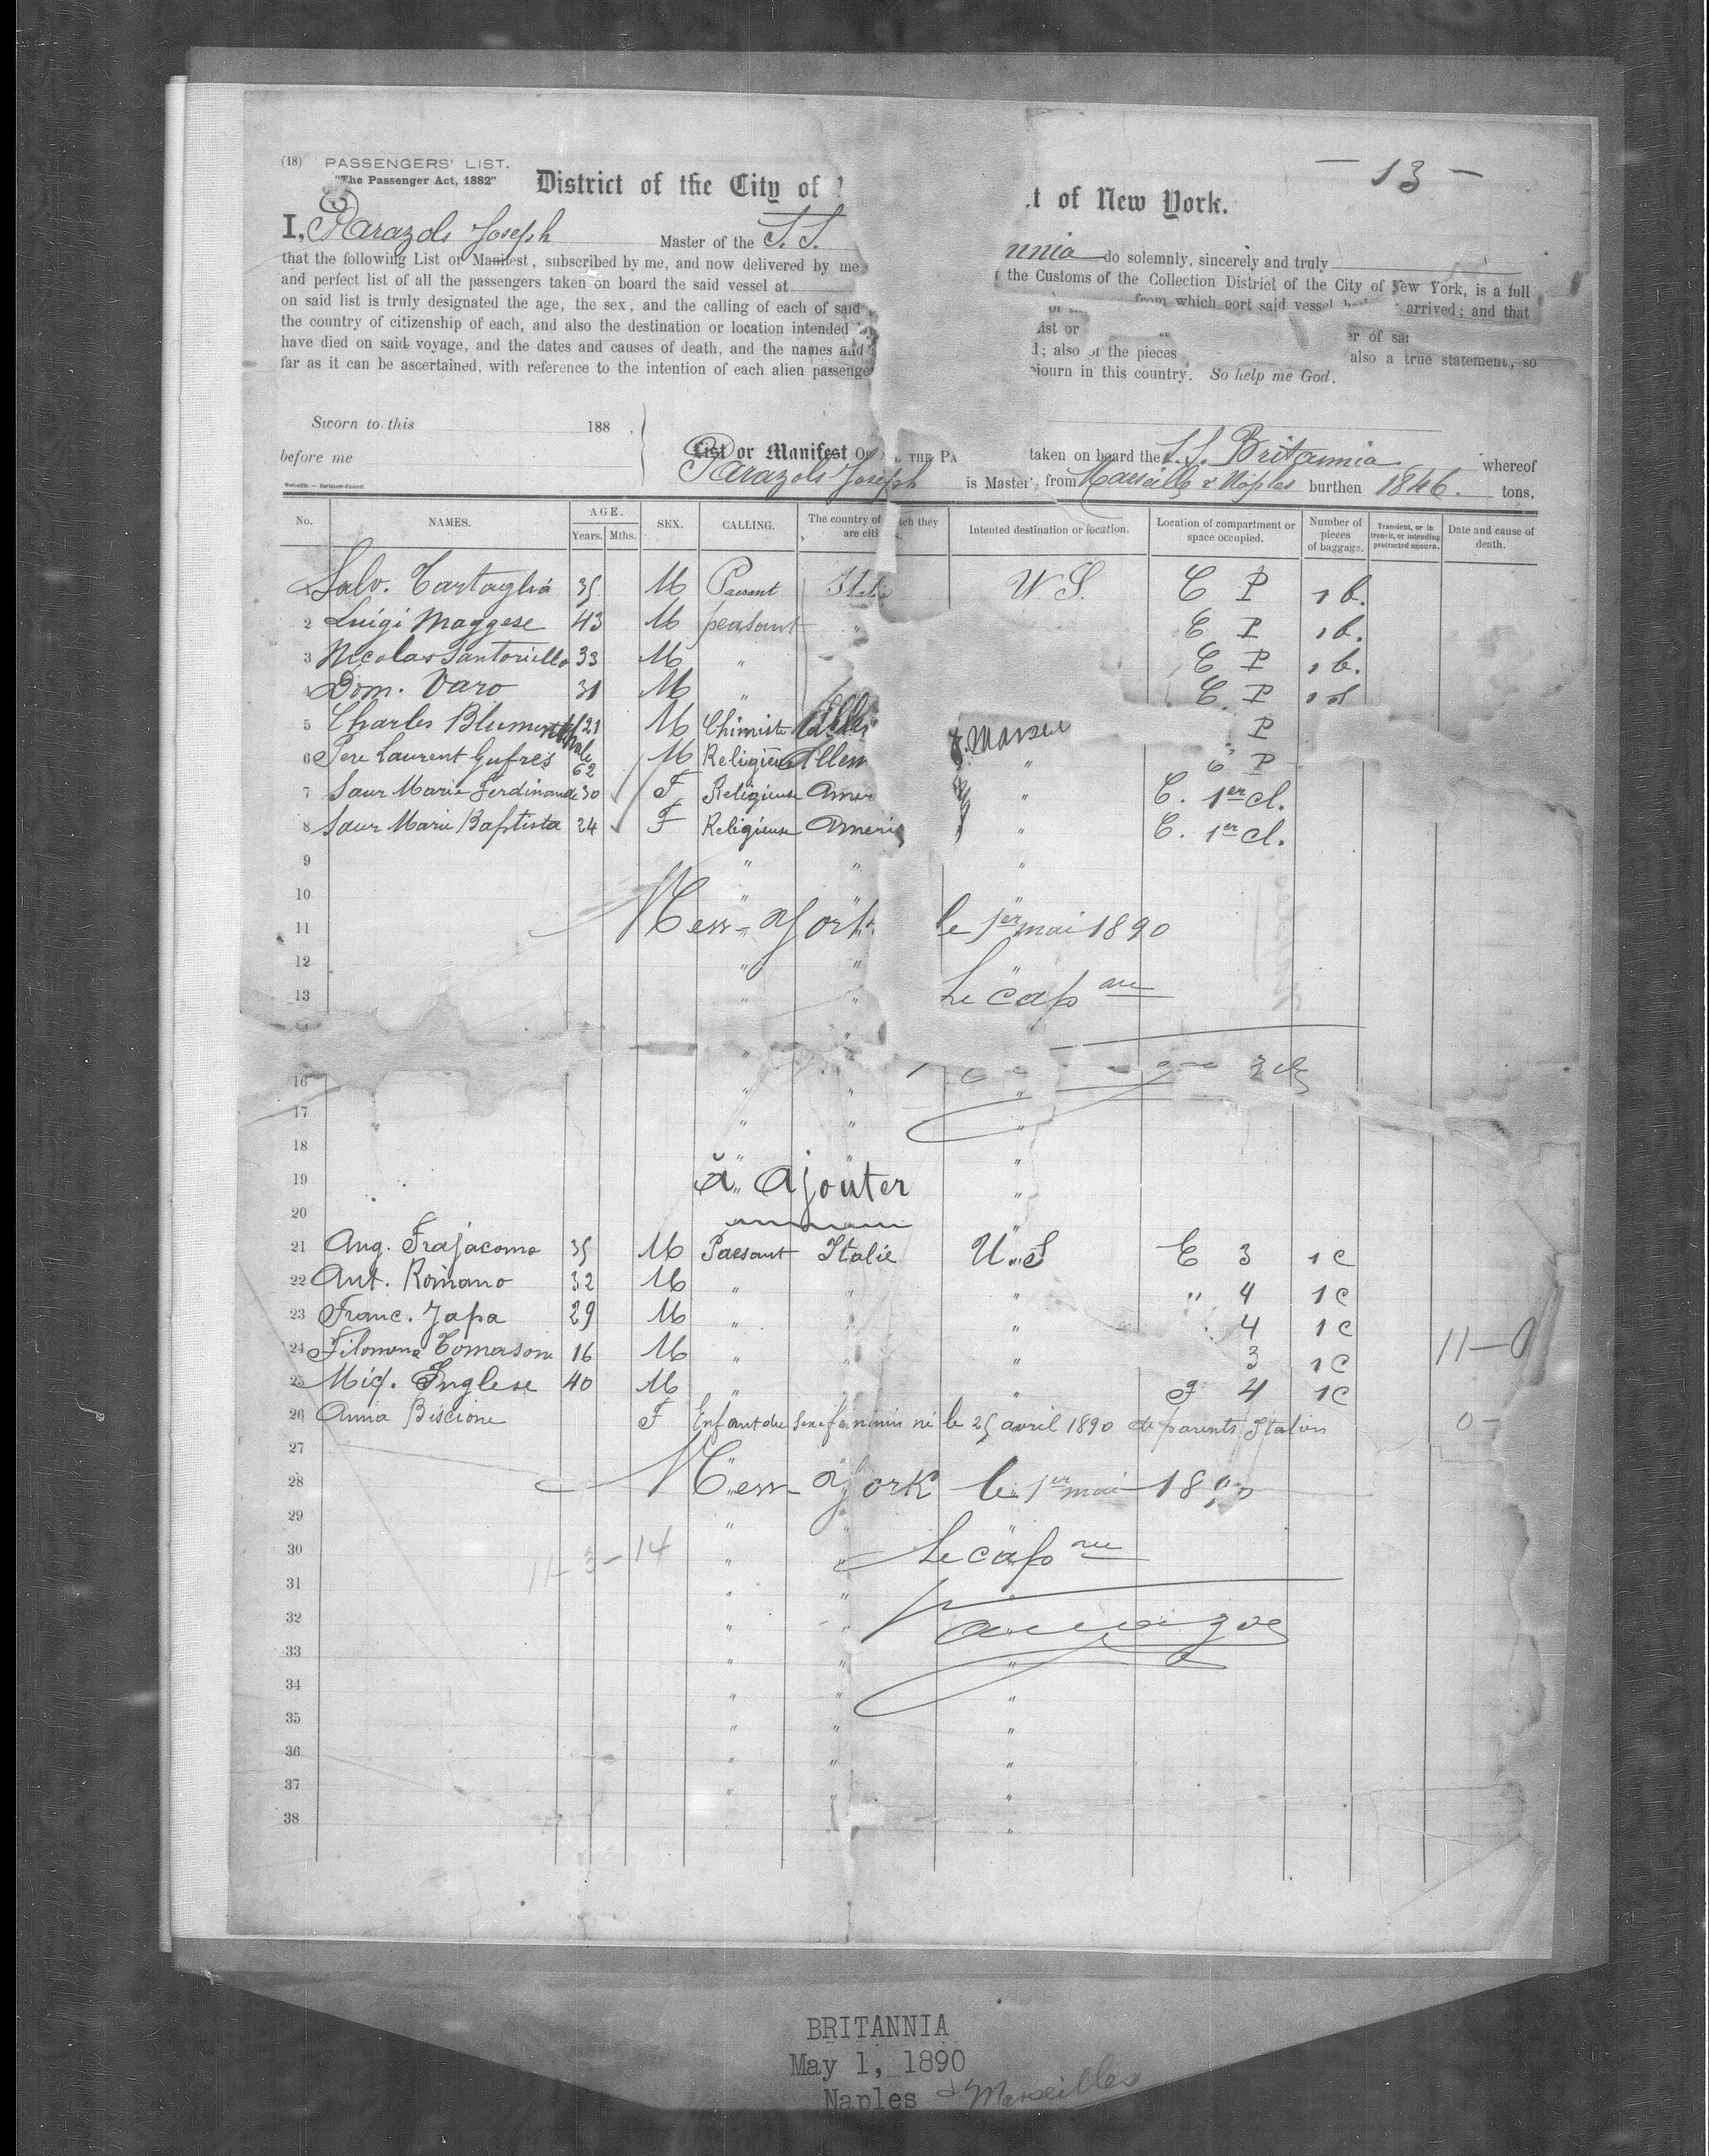 (18) PASSENGERS' LIST.
"The Passenger Act, 1882"
District of the City of
t of New York.
— 13 —
I, Parazols Joseph Master of the S.S.
nnia do solemnly, sincerely and truly
that the following List or Manifest, subscribed by me, and now delivered by me
the Customs of the Collection District of the City of New York, is a full
and perfect list of all the passengers taken on board the said vessel at
from which port said vessel arrived; and that
on said list is truly designated the age, the sex, and the calling of each of said
the country of citizenship of each, and also the destination or location intended
list or
er of
have died on said voyage, and the dates and causes of death, and the names and
; also of the pieces
also a true statement, so
far as it can be ascertained, with reference to the intention of each alien passenge
ojourn in this country. So help me God.
Sworn to this 188 .
before me
List or Manifest OF THE PA taken on board the S.S. Britannia whereof
Parazols Joseph is Master, from Marseille & Naples burthen 1846. tons,
No. NAMES. AGE. Years. Mths. SEX. CALLING. The country of ich they are citi s. Intented destination or location. Location of compartment or space occupied. Number of pieces of baggage. Transient, or in transit, or intending protracted sojourn. Date and cause of death.
Salv. Cartaglia 35 M Paesant Itali U S. C P 1 b.
2 Luigi Maggese 43 M peasant " C P 1 b.
3 Nicolas Santoriello 33 M " C P 1 b.
4 Dom. Varo 31 M " C. P
5 Charles Blumenthal 21 M Chimiste P
6 Pere Laurent Gufres 62 M Religieux Allem " P
7 Sœur Marie Ferdinande 30 F Religieuse Amer " C. 1er cl.
8 Sœur Marie Baptista 24 F Religieuse Ameri " C. 1er cl.
9 " " "
10 " " "
11 New-York le 1er mai 1890
12 " "
13 " " Le Capne
16 " " "
17 " " "
18 " "
19 à ajouter "
20 "
21 Ang. Frajacomo 35 M Paesant Italie U.S C 3 1 C
22 Ant. Romano 32 M " " " " 4 1 C
23 Franc. Japa 29 M " " " 4 1 C
24 Filomena Comasone 16 M " " " 3 1 C 11—0
25 Mig. Inglese 40 M " " " 4 1 C
26 Anna Biscione F Enfant du sexe féminin né le 25 avril 1890 de parents Italien 0 —
27
28 New-York le 1er mai 1890
29 " "
30 11 - 3 - 14 " " Le Capne
31 " " "
32 " "
33 " " "
34 " " "
35 " " "
36 " " "
37 " " "
38 " "
BRITANNIA
May 1, 1890
Naples & Marseilles